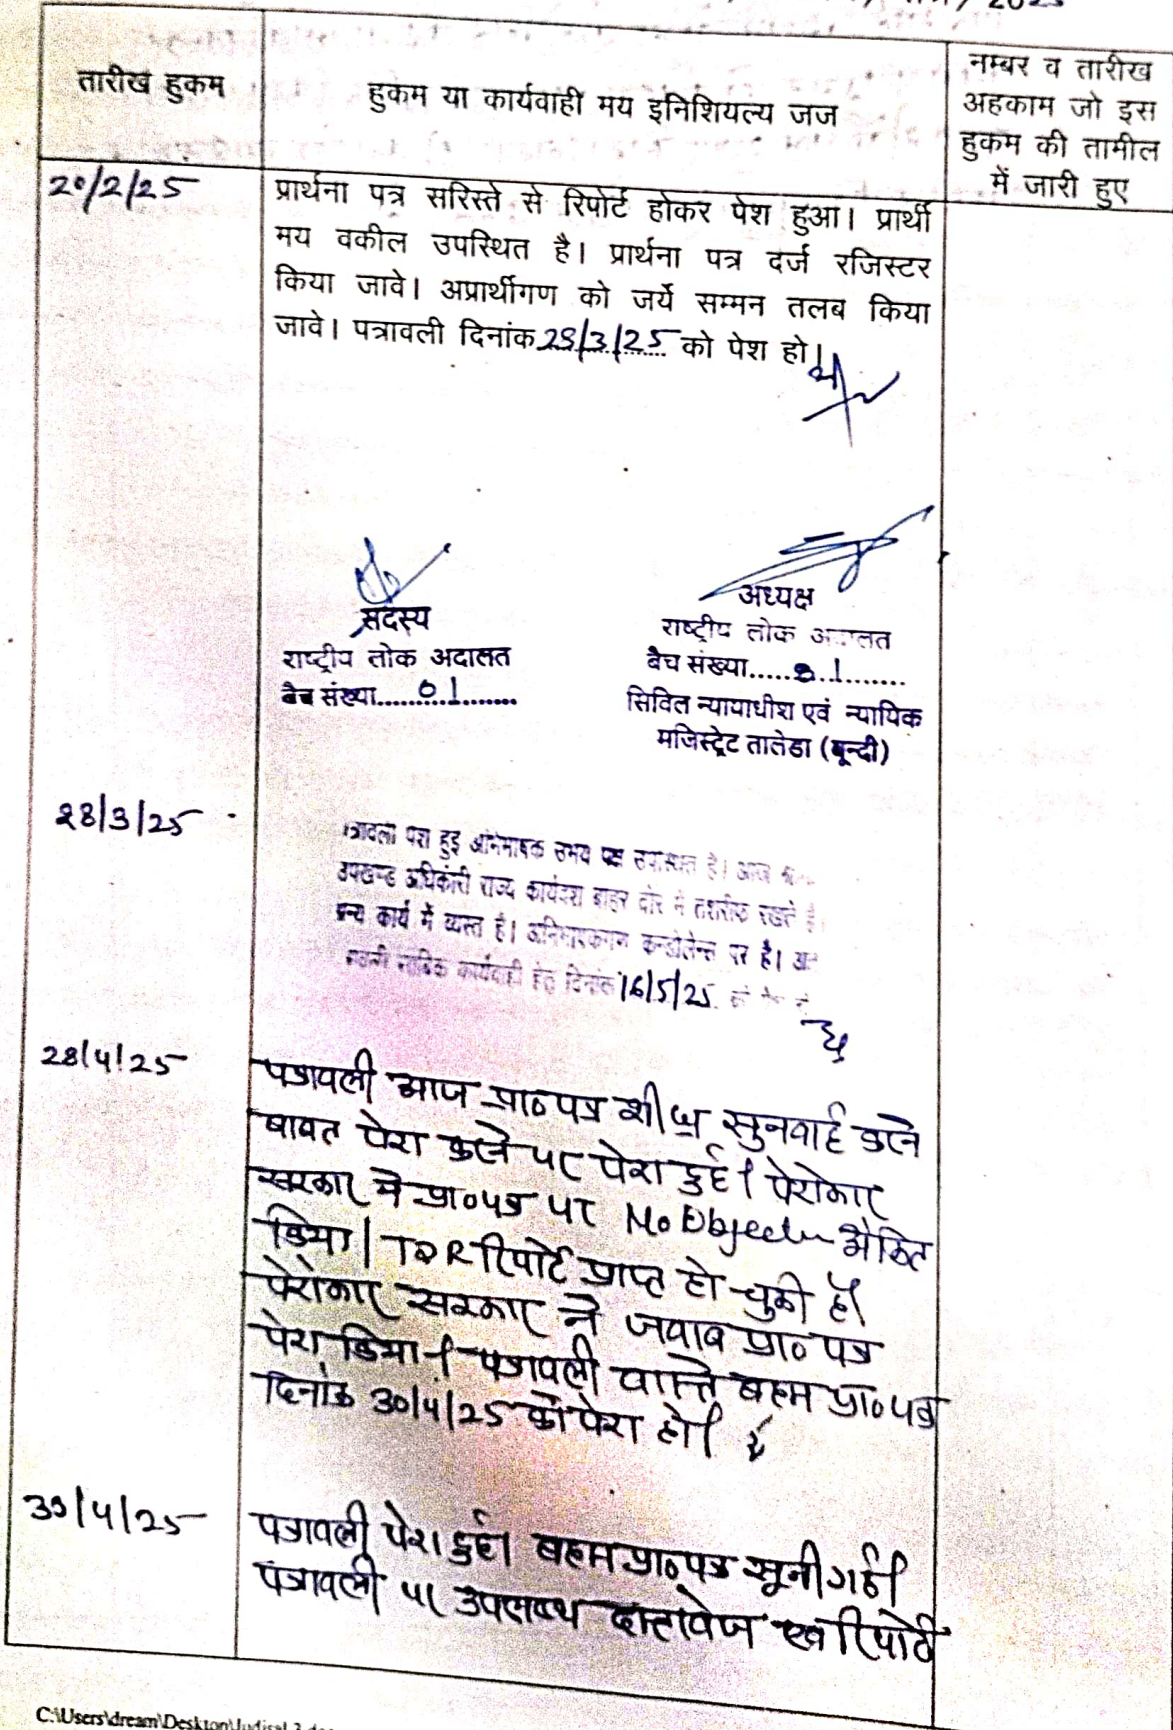 तारीख हुकम
हुकम या कार्यवाही मय इनिशियल्य जज
नम्बर व तारीख
अहकाम जो इस
हुकम की तामील
में जारी हुए
20/2/25
प्रार्थना पत्र सरिस्ते से रिपोर्ट होकर पेश हुआ। प्रार्थी
मय वकील उपस्थित है। प्रार्थना पत्र दर्ज रजिस्टर
किया जावे। अप्रार्थीगण को जर्ये सम्मन तलब किया
जावे। पत्रावली दिनांक 28/3/25 को पेश हो।
सदस्य
राष्ट्रीय लोक अदालत
बैंच संख्या.........01.......
अध्यक्ष
राष्ट्रीय लोक अदालत
बैच संख्या.....01........
सिविल न्यायाधीश एवं न्यायिक
मजिस्ट्रेट तालेडा (बून्दी)
28/3/25
पेश हुई अभिभाषक उभय पक्ष उपस्थित है। आज
उपखण्ड अधिकारी राज्य कार्यवश बाहर दौरे में तशरीफ रखते है
अन्य कार्य में व्यस्त है। अभिभाषकगण कन्डोलेन्स पर है।
कार्यवाही हेतु दिनांक 16/5/25
28/4/25
पत्रावली आज प्रा० पत्र शीघ्र सुनवाई करने
बाबत पेश करने पर पेश हुई। पेरोकार
सरकार ने प्रा० पत्र पर No Objection अंकित
किया। TDR रिपोर्ट प्राप्त हो चुकी है।
पेरोकार सरकार ने जवाब प्रा० पत्र
पेश किया। पत्रावली वास्ते बहस प्रा० पत्र
दिनांक 30/4/25 को पेश हो।
30/4/25
पत्रावली पेश हुई। बहस प्रा० पत्र सूनी गई।
पत्रावली पर उपलब्ध दस्तावेज एवं रिपोर्ट
C:\Users\dream\Desktop\Judisal